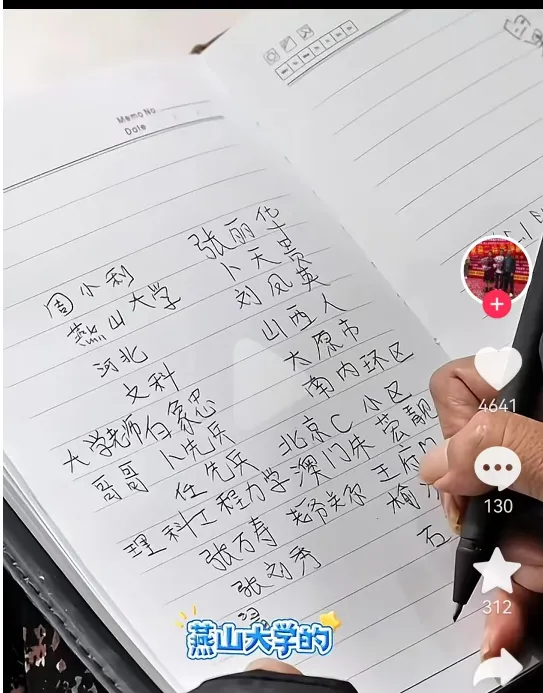 Memo No.
Date
周小利 张丽华
燕山大学 卜天贵
河北 刘凤英
文科 山西人
大学老师白象忠 太原市
哥哥 卜先兵 南内环区
任先兵 北京C小区
理科工程力学 澳门朱芸靓
张万寿 老爷关尔 王府
张刘秀 榆
石
4641
130
312
燕山大学的